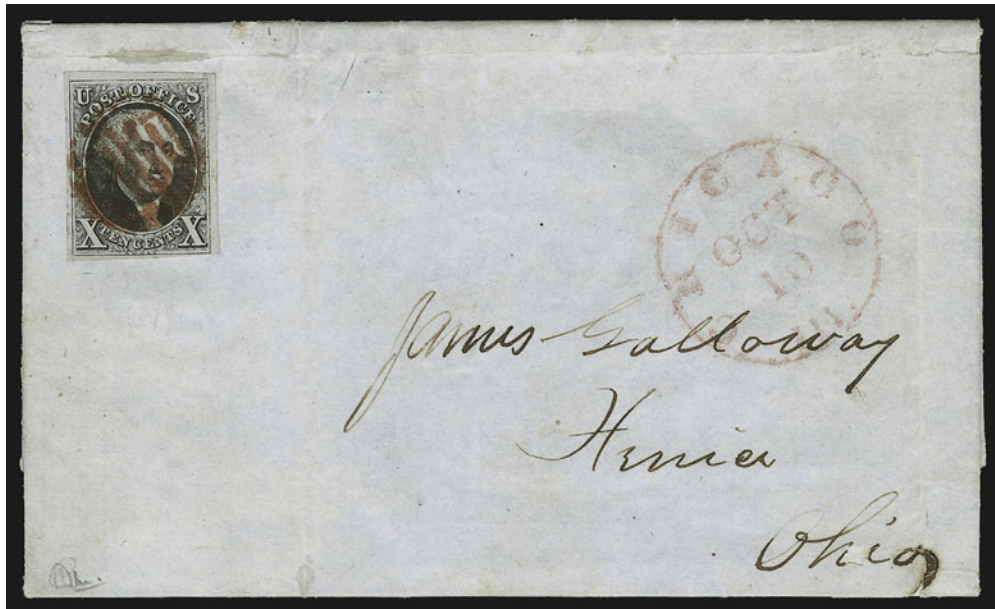 U S
POST OFFICE
X TEN CENTS X
CHICAGO
OCT
10
James Galloway
Ohio